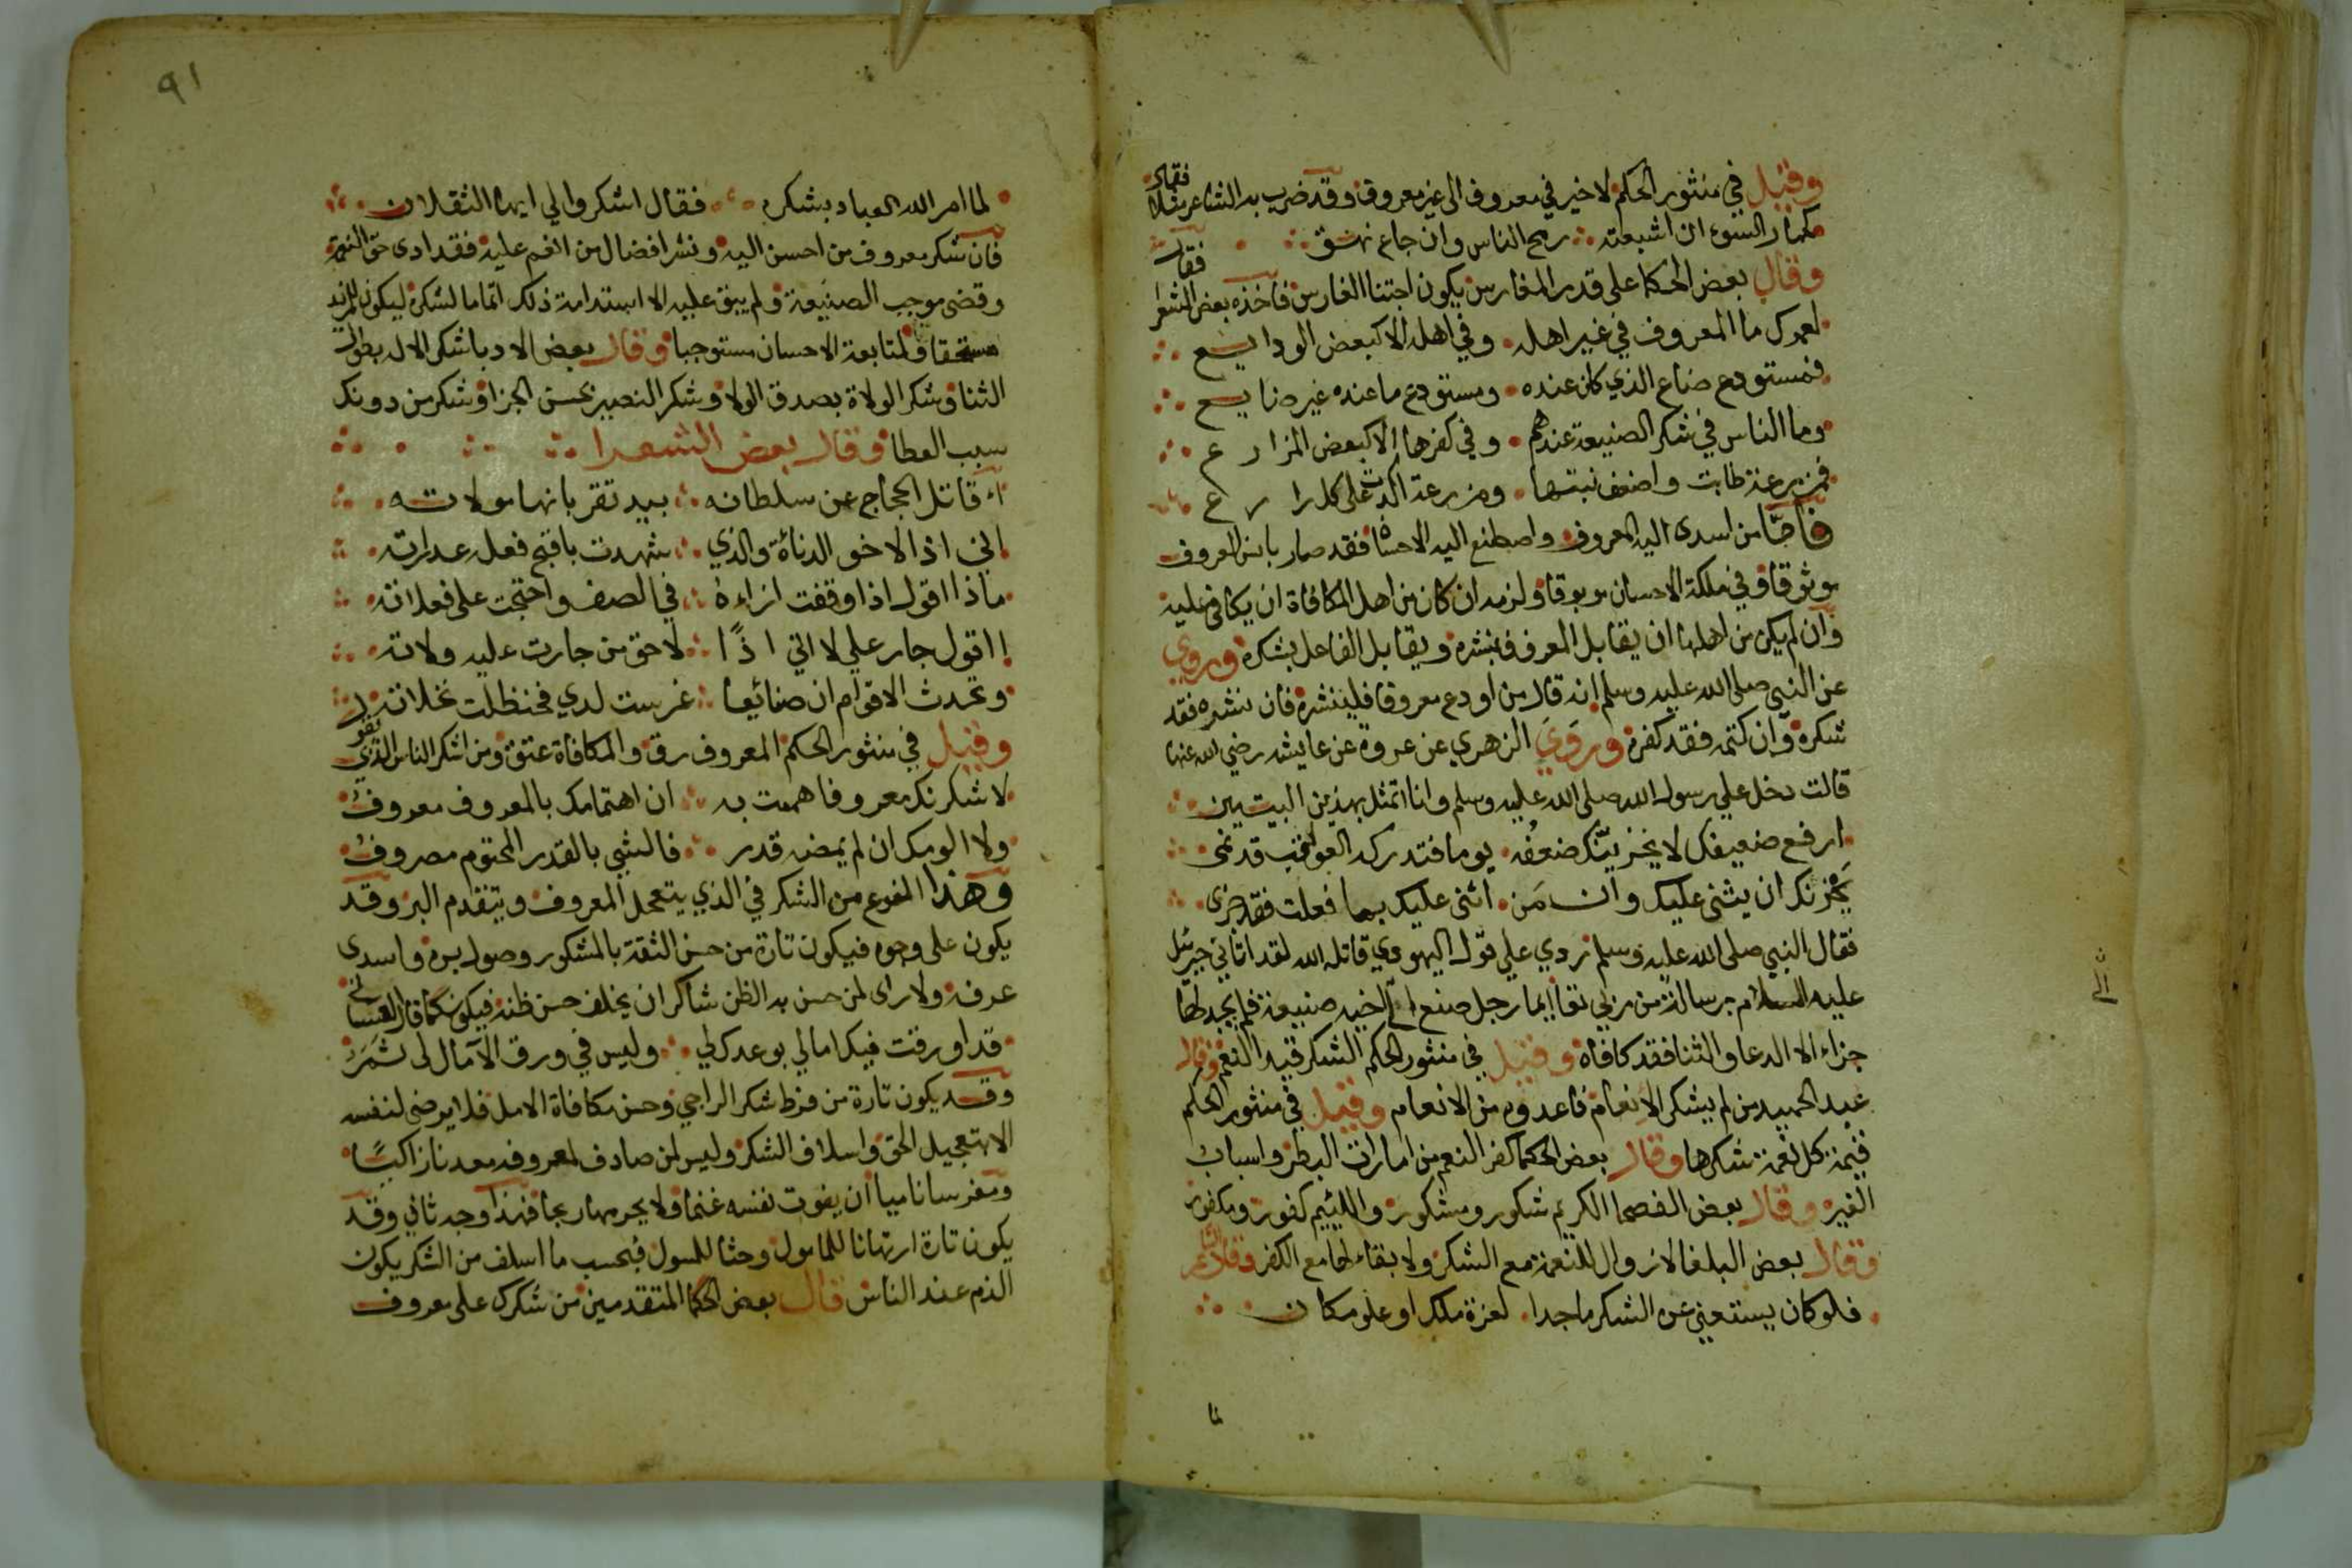 وقيل في منثور الحكم لا خير في معروف الى غير معروف وقد ضرب به الشاعر مثلا فقال
كمار السوء ان اشبعته رمح الناس وان جاع نهق
وقال بعض الحكما على قدر المغارس يكون اجتنا الغارس فاخذه بعض الشعرا فقال
لعمرك ما المعروف في غير اهله وفي اهله الا كبعض الودايع
فمستودع ضاع الذي كان عنده ومستودع ما عنده غير ضايع
وما الناس في شكر الصنيعة عندهم وفي كفرها الا كبعض المزارع
فمزرعة طابت واضعف نبتها ومزرعة اكدت على كل زارع
فاما من اسدى اليه المعروف واصطنع اليه الاحسان فقد صار باسر المعروف
موثوقا وفي ملكة الاحسان مربوقا ولزمه ان كان من اهل المكافاة ان يكافي عليه
وان لم يكن من اهلها ان يقابل المعروف بنشره ويقابل الفاعل بشكره وروي
عن النبي صلى الله عليه وسلم انه قال من اودع معروفا فلينشره فان نشره فقد
شكره وان كتمه فقد كفره وروي الزهري عن عروة عن عايشه رضي الله عنها
قالت دخل علي رسول الله صلى الله عليه وسلم وانا اتمثل بهذين البيتين
ارفع ضعيفك لا يخزينك ضعفه يوما فتدركه العواقب قد نمى
يجزنك ان يثنى عليك وان من اثنى عليك بما فعلت فقد جزى
فقال النبي صلى الله عليه وسلم ردي علي قول اليهودي قاتله الله لقد اتاني جبريل
عليه السلام برسالة من ربي تعا ايما رجل صنع الى اخيه صنيعة فلم يجد لها
جزاء الا الدعا والثنا فقد كافاه وقيل في منثور الحكم الشكر قيد النعم وقال
عبد الحميد من لم يشكر الانعام فاعدوه من الانعام وقيل في منثور الحكم
قيمة كل نعمة شكرها وقال بعض الحكما كفر النعم من امارات البطر واسباب
الغير وقال بعض الفصحا الكريم شكور ومشكور واللئيم كفور ومكفور
وقال بعض البلغا لا زوال للنعمة مع الشكر ولا بقاء لها مع الكفر وقال الشاعر
فلو كان يستغني عن الشكر ماجدا لعزة ملك او علو مكان
لما
الى
٩١
لما امر الله العباد بشكره فقال اشكروا لي ايها الثقلان
فان شكر معروف من احسن اليه ونشر افضال من انعم عليه فقد ادى حق النعمة
وقضى موجب الصنيعة ولم يبق عليه الا استدامة ذلك اتماما لشكره ليكون للمزيد
مستحقا ولمتابعة الاحسان مستوجبا وقال بعض الادبا شكر الاله بطول
الثنا وشكر الولاة بصدق الولا وشكر النصير بحسن الجزا وشكر من دونك
سبب العطا وقال بعض الشعرا
اء قاتل الحجاج عن سلطانه بيد تقر بانها مولاته
اني اذا لاخو الدناءة والذي شهدت باقبح فعله عداراته
ماذا اقول اذا وقفت ازاءه في الصف واحتجت على فعلاته
ااقول جار علي لا اني اذا لاحق من جارت عليه ولاته
وتحدث الاقوام ان صنائعا غرست لدي فحنظلت نخلاته
وقيل في منثور الحكم المعروف رق والمكافاة عتق ومن اشكر الناس الذي يقول
لاشكرنك معروفا هممت به ان اهتمامك بالمعروف معروف
ولا الومك ان لم يمضه قدر فالشي بالقدر المحتوم مصروف
وهذا النوع من الشكر في الذي يتعجل المعروف ويتقدم البر وقد
يكون على وجوه فيكون تارة من حسن الثقة بالمشكور وصول بره واسدى
عرفه ولا راى لمن حسن به الظن شاكر ان يخلف حسن ظنه فيكون كما قال العتابي
قد اورقت فيك امالي بوعدك لي وليس في ورق الآمال لى ثمر
وقد يكون تارة من فرط شكر الراجي وحسن مكافاة الامل فلا يرضى لنفسه
الا بتعجيل الحق واسلاف الشكر وليس لمن صادف لمعروفه معدنا زاكيا
ومغرسا ناميا ان يفوت نفسه غنما ولا يحرمها ربحا فهذا وجه ثاني وقد
يكون تارة ارتهانا للمامول وحثا للسول فبحسب ما اسلف من الشكر يكون
الذم عند الناس قال بعض الحكما المتقدمين من شكرك على معروف